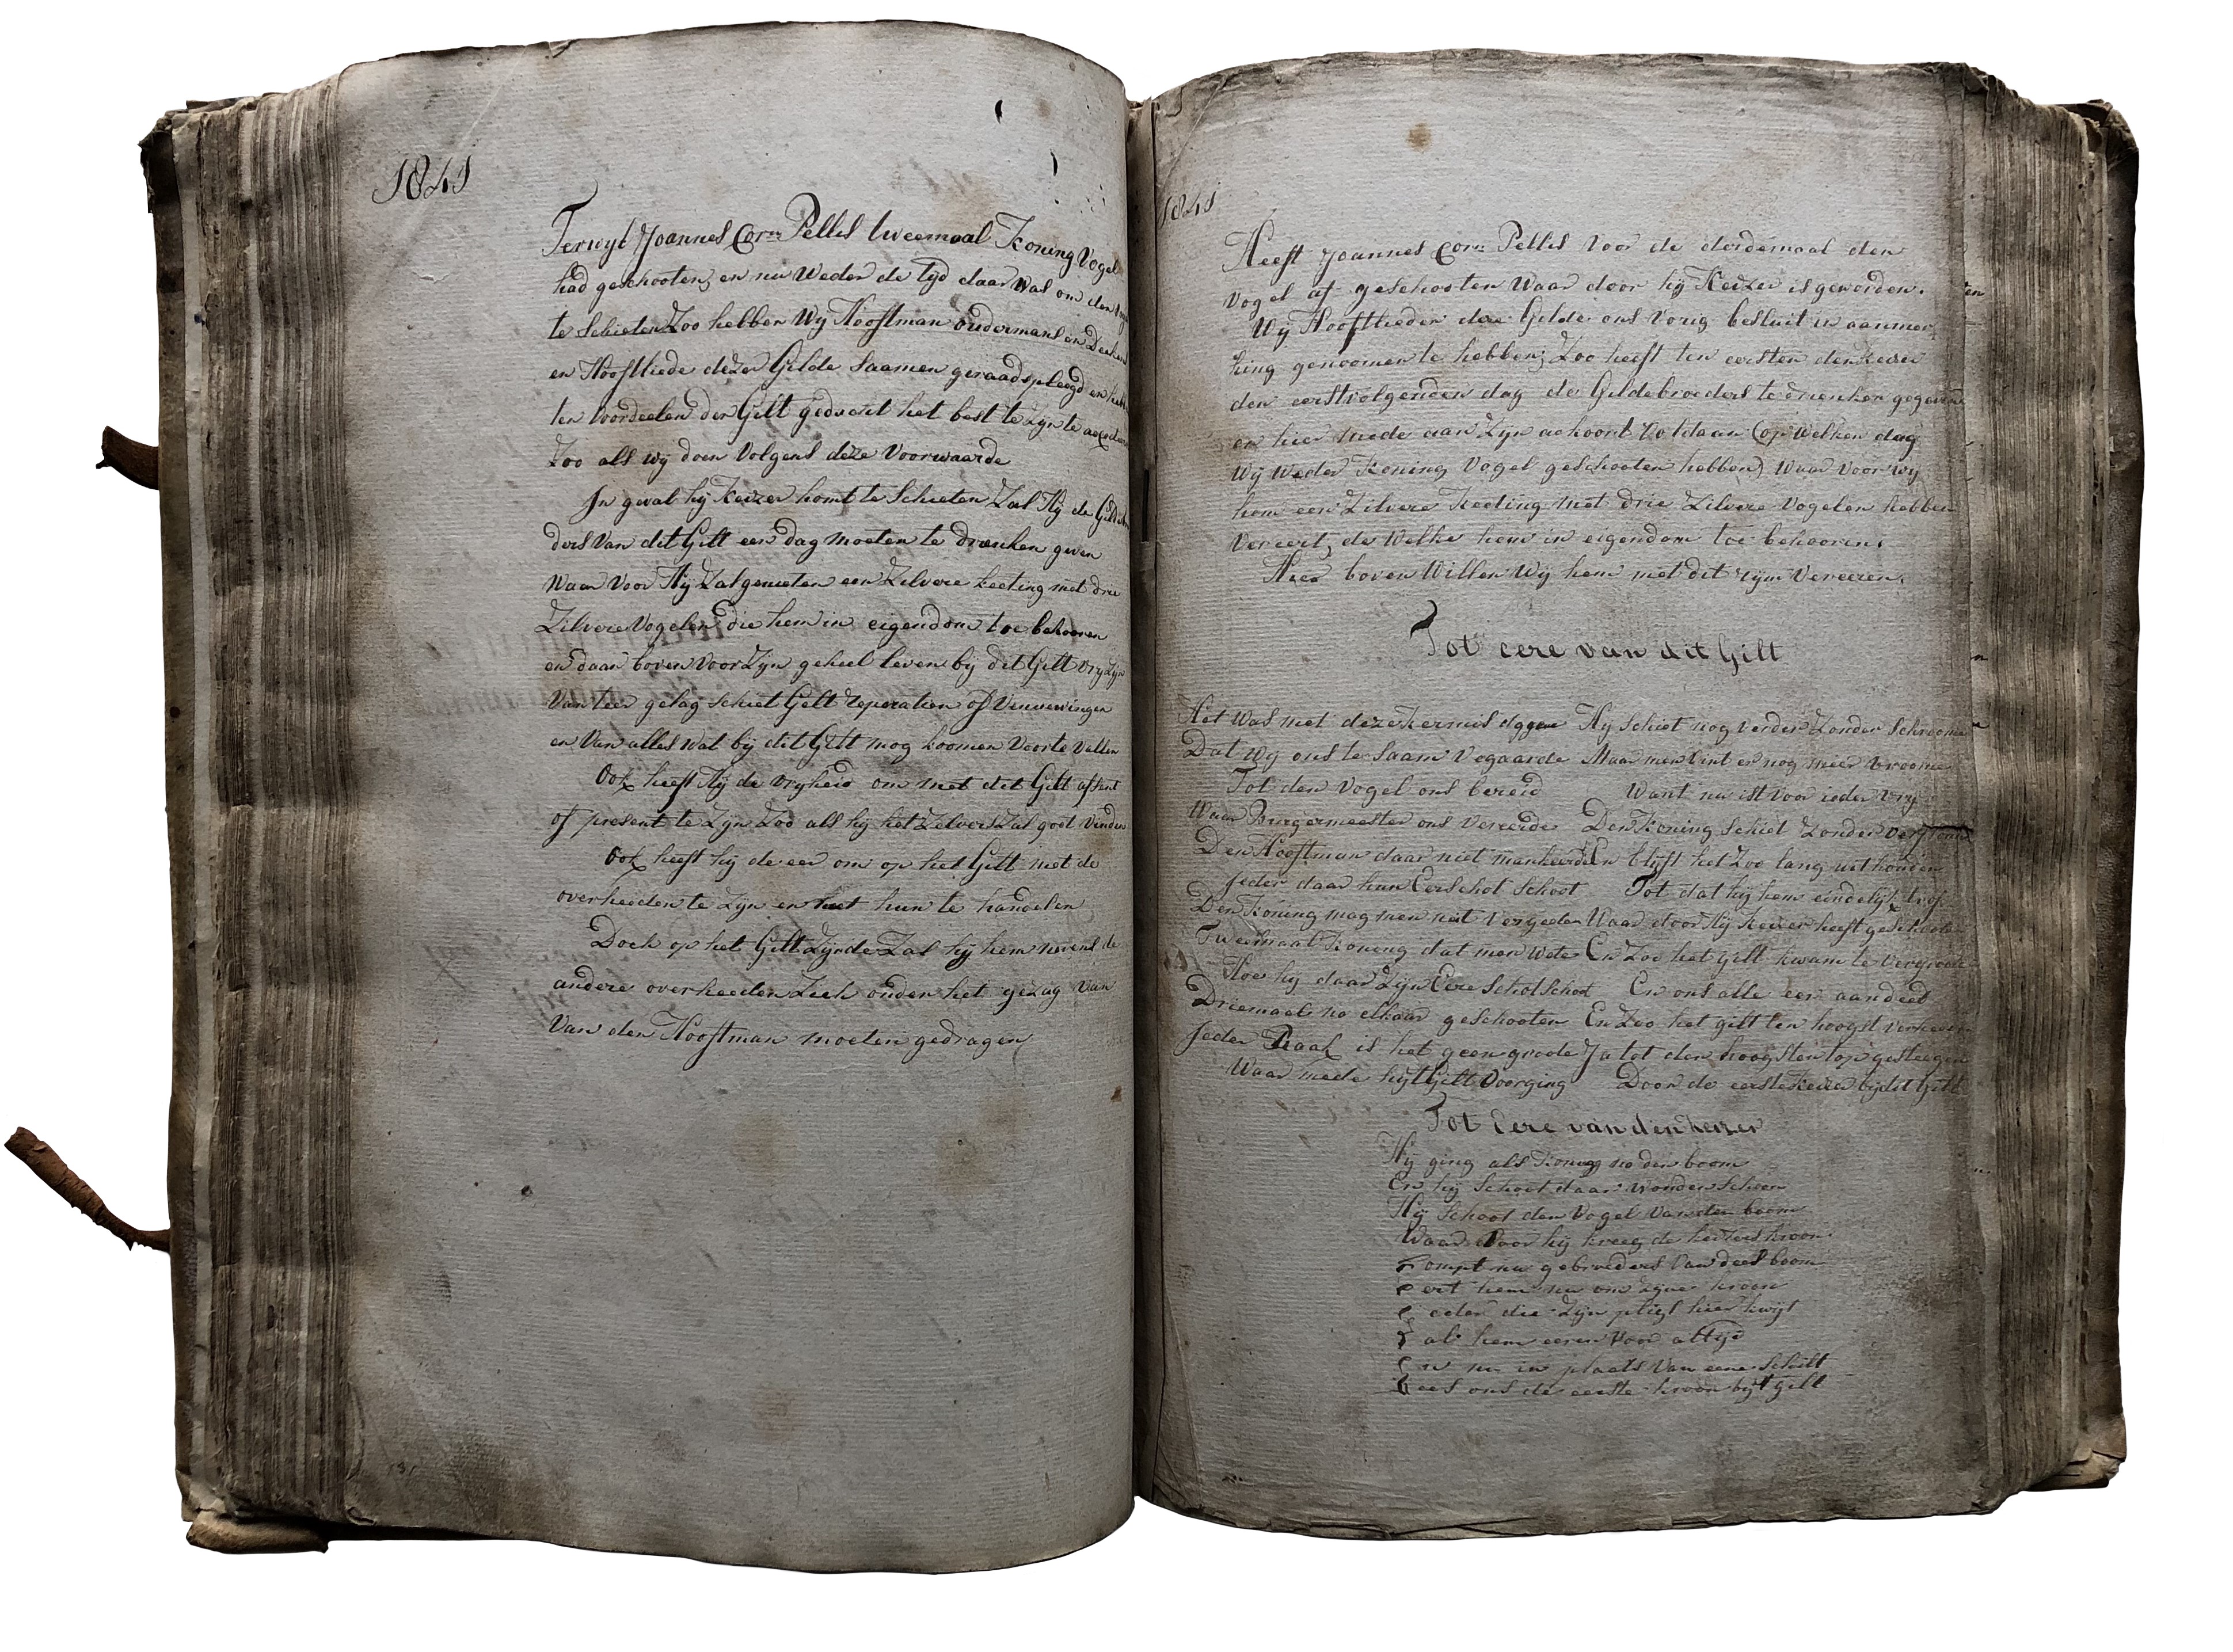 1841
Terwyl Joannes Corn: Pelles tweemaal Koning Vogel
had geschooten, en nu Weder de tyd daar was om den
te Schieten Zoo hebben Wy Hooftman oudermans en Deeken
en Hooftliede dezer Gilde Saamen geraadspleegd en
ten voordeelen der Gilt gedacht het best te Zyn te
Zoo als wy doen Volgens deze Voorwaarde
In geval hy Keizer komt te Schieten Zal Hy de
ders Van dit Gilt een dag moeten te drinken geven
Waar Voor Hy Zal genieten een Zilvere keeting met drie
Zilvere Vogelen die hem in eigendom toe behooren
en daar boven Voor Zyn geheel leven by dit Gilt Vry Zyn
Van teer gelag schiet Gelt reparatien of
en Van alles Wat by dit Gilt mog koomen Voor te Vallen
Ook heeft Hy de vryheid om met dit Gilt absent
of present te Zyn Zoo als hy het Zelvers Zal goet Vinden
Ook heeft hy de eer om op het Gilt met de
overheeden te Zyn en met hun te handelen
Doch op het Gilt Zynde Zal hy hem nevens de
andere overheeden Zich onder het gezag Van
Van den Hooftman moeten gedragen
1841
Heeft Joannes Corn: Pelles Voor de derdemaal den
Vogel af geschooten Waar door hy Keizer is geworden.
Wy Hooftlieden der Gilde ons Vorig besluit in aanmer
king genoomen te hebben; Zoo heeft ten eersten den keizer
den eerstvolgenden dag de Gildebroeders te drienken gegeven
en hier mede aan Zyn ackoort Voldaan (op Welken dag
Wy Weder Koning Vogel geschooten hebben) Waar Voor wy
hem een Zilvere Keeting met drie Zilvere Vogelen hebben
Vereert, de Welke hem in eigendom toe behooren.
Hier boven Willen Wy hem met dit rym Vereeren.
Tot eere van dit Gilt
Het Was met deze kermis daggen
Dat Wy ons te Saam Vegaarde
Tot den Vogel ons bereid
Waar Burgermeester ons Vereerde
Den Hooftman daar niet mankeerde
Jeder daar hun Eerschot Schoot
Den Koning mag men niet Vergeeten
Tweemaal Koning dat men Wete
Hoe hy daar Zyn Eere Schot Schoot
Driemaal na elkaar geschooten
Jeder Raak is het geen groote
Waar mede hy 't Gilt Voorging
Hy Schiet nog Verder Zonder Schroome
Maar men Vint er nog meer Vroome
Want nu ist Voor ieder Vry
Den Koning Schiet Zonder
En blyft het Zoo lang uithouden
Tot dat hy hem eindelyk trof
Waar door Hy Keizer heeft geschooten
En Zoo het Gilt kwam te Vergrooten
En ons alle eer aandeed
En Zoo het gilt ten hoogst Verheeven
Ja tot den hoogsten top gesteegen
Door de eerste Keizer by dit Gilt
Tot Eere van den keizer
Hy ging als Koning na den boom
En hy Schoot daar wonder Schoon
Hy Schoot den Vogel Van den boom
Waar Voor hy kreeg de keizers kroon
Kompt nu gebroeders Van dees boom
Eert hem nu om Zyne kroon
Ieder die Zyn pligt hier kwyt
Zal hem eeren Voor altyd
En nu in plaats Van eene Schilt
Rees ons de eerste kroon by 't Gilt